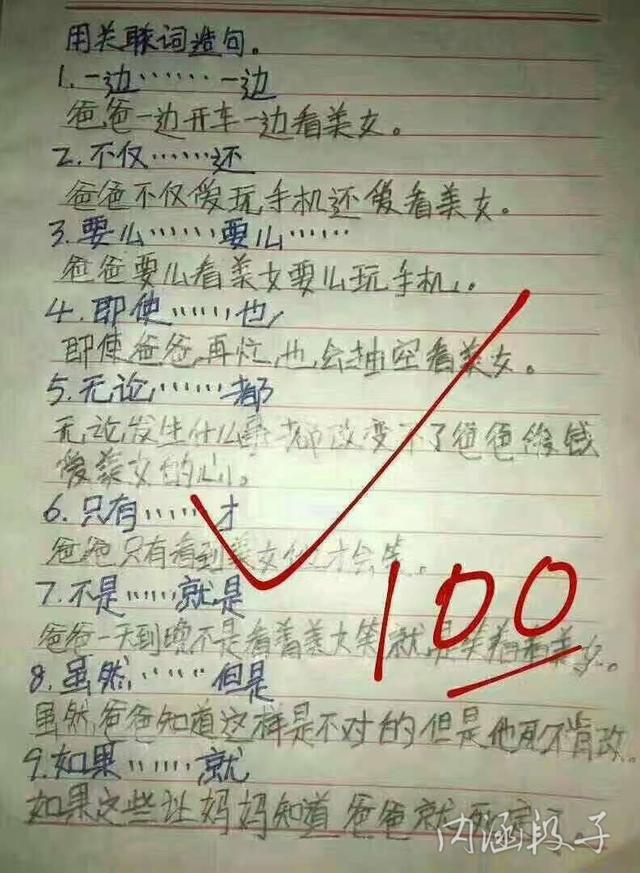 用关联词造句。
1.一边……一边
爸爸一边开车一边看美女。
2.不仅……还
爸爸不仅爱玩手机还爱看美女。
3.要么……要么……
爸爸要么看美女要么玩手机。
4.即使……也
即使爸爸再忙,也会抽空看美女。
5.无论……都
无论发生什么事都改变不了爸爸
爱美女的心。
6.只有……才
爸爸只有看到美女他才会笑。
7.不是……就是
爸爸一天到晚不是看着美女笑就是
8.虽然……但是
虽然爸爸知道这样是不对的但是他死不肯改。
9.如果……就
如果这些让妈妈知道爸爸就死定了。
100
内涵段子